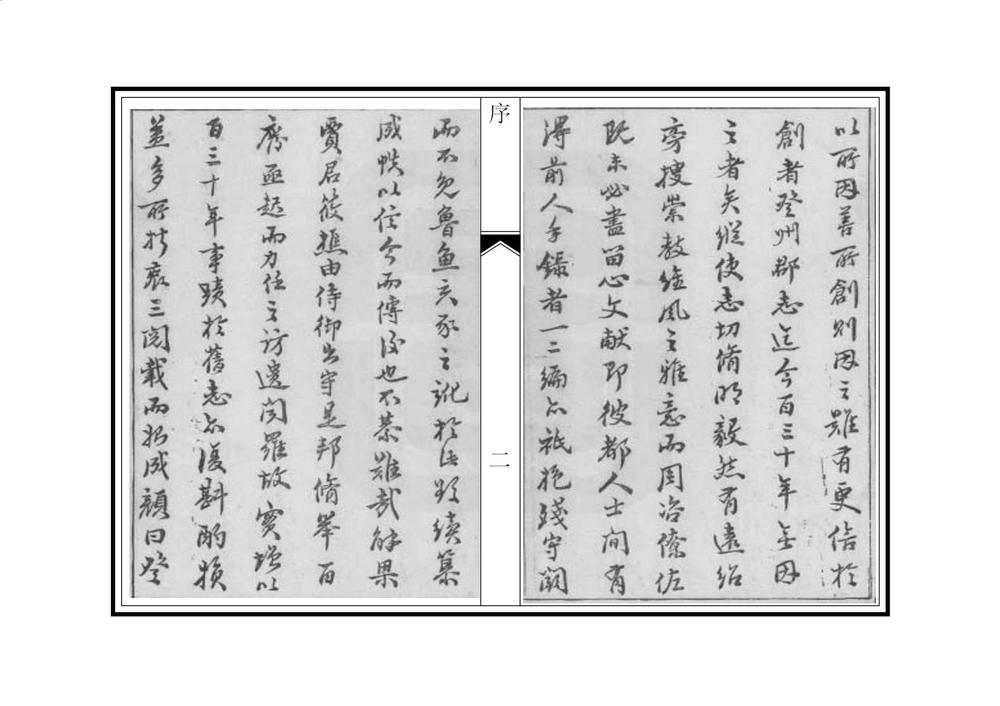 以所因善所創則因之雖有更倍於
創者登州郡志迄今百三十年無因
之者矣縱使志切脩明毅然有遠紹
旁搜崇教維風之雅意而周咨僚佐
既未必盡留心文獻即彼都人士間有
得前人手錄者一二編亦祇抱殘守闕
序
二
而不免魯魚亥豕之訛於此欲續纂
成帙以信今而傳後也不綦難哉解果
賈君筱樵由侍御出守是邦脩舉百
廢亟起而力任之訪遺聞羅故實增以
百三十年事蹟於舊志亦復斟酌損
益多所折衷三閱載而始成顏曰登